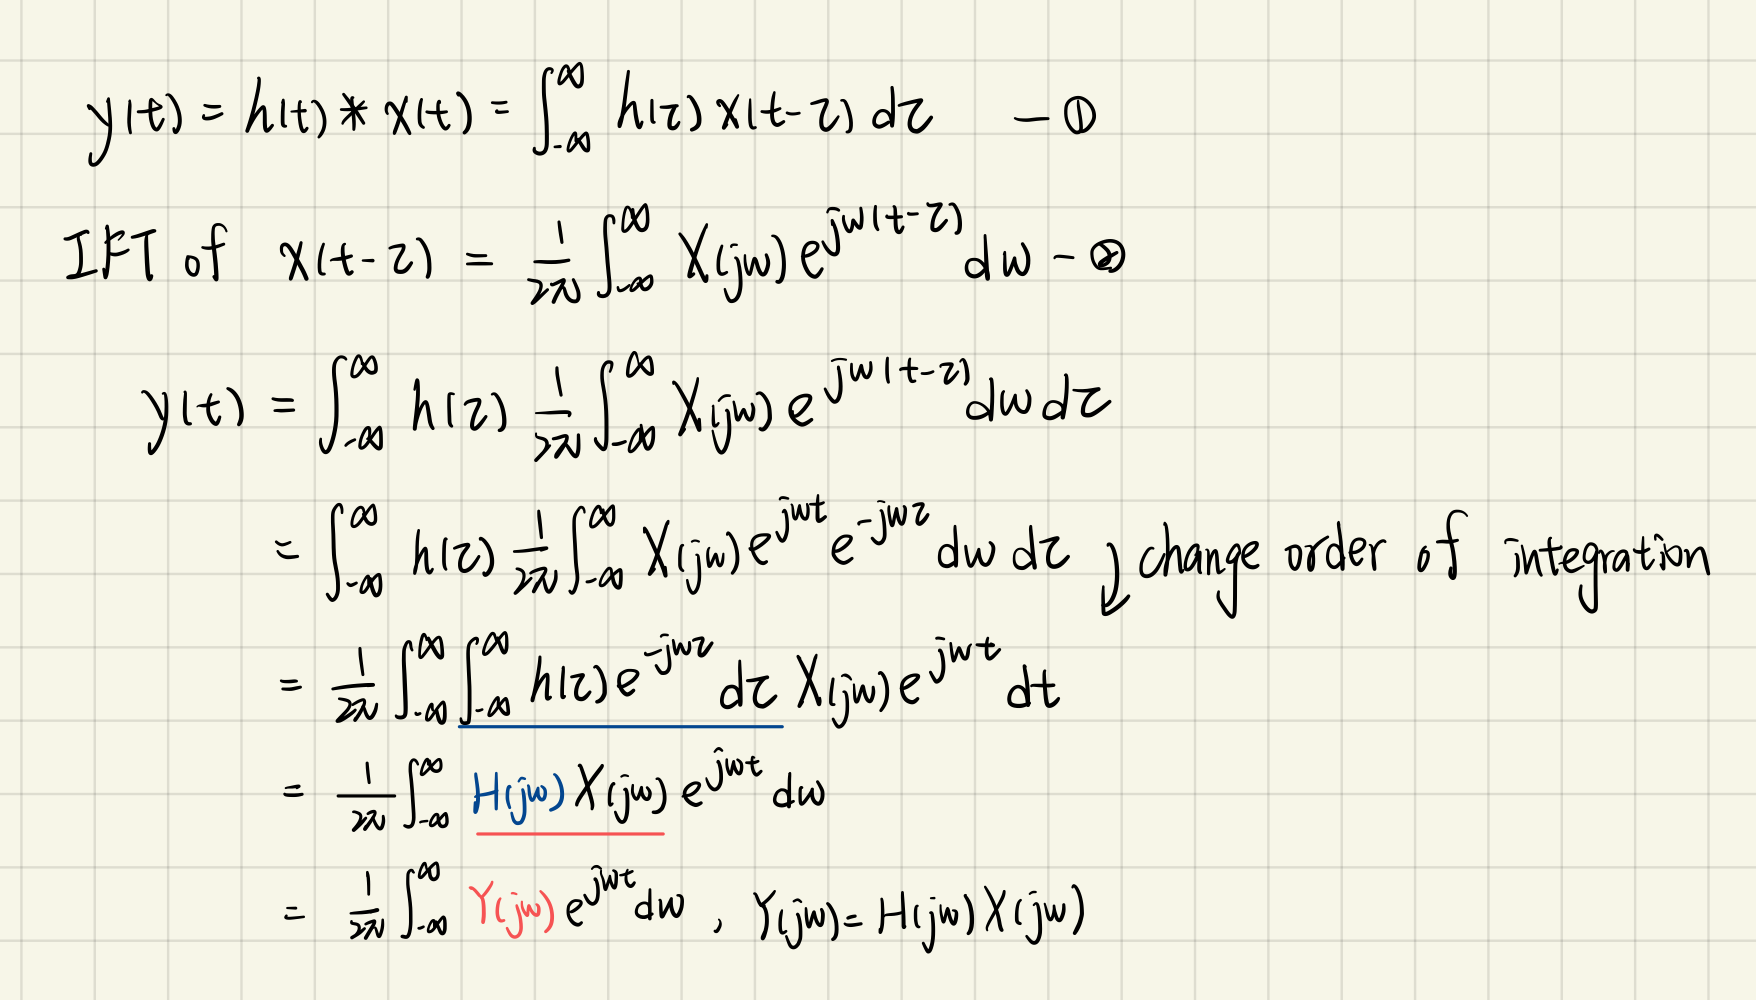 y(t) = h(t) * x(t) = ∫_{-∞}^{∞} h(τ) x(t-τ) dτ — ①
IFT of x(t-τ) = 1/2π ∫_{-∞}^{∞} X(jω) e^{jω(t-τ)} dω - ②
y(t) = ∫_{-∞}^{∞} h(τ) 1/2π ∫_{-∞}^{∞} X(jω) e^{jω(t-τ)} dω dτ
= ∫_{-∞}^{∞} h(τ) 1/2π ∫_{-∞}^{∞} X(jω) e^{jωt} e^{-jωτ} dω dτ ↓ change order of integration
= 1/2π ∫_{-∞}^{∞} ∫_{-∞}^{∞} h(τ) e^{-jωτ} dτ X(jω) e^{jωt} dt
= 1/2π ∫_{-∞}^{∞} H(jω) X(jω) e^{jωt} dω
= 1/2π ∫_{-∞}^{∞} Y(jω) e^{jωt} dω , Y(jω) = H(jω) X(jω)